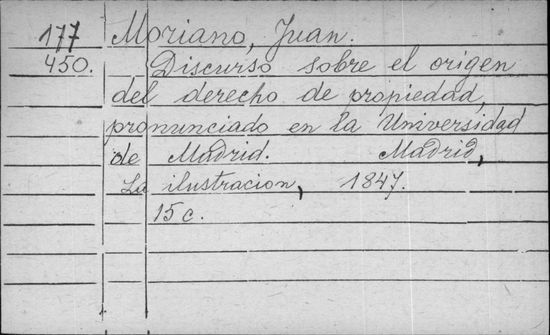 177 Moriano, Juan.
450. Discurso sobre el origen
del derecho de propiedad,
pronunciado en la Universidad
de Madrid. Madrid,
La ilustracion, 1847.
15 c.